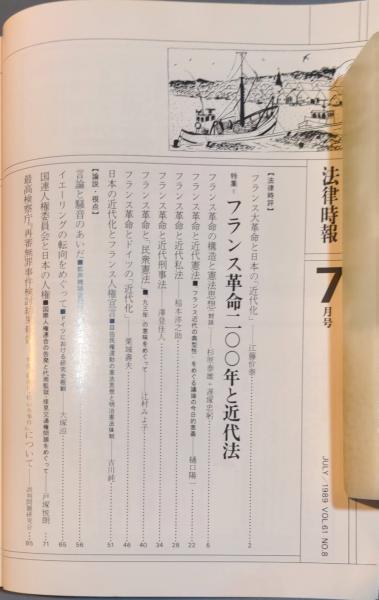 法律時報
7月号
JULY/1989 VOL.61 NO.8
【法律時評】
フランス大革命と日本の「近代化」 江藤价泰 2
特集＝フランス革命二〇〇年と近代法
フランス革命の構造と憲法思想〈対談〉 杉原泰雄＋遅塚忠躬 6
フランス革命と近代憲法■「フランス近代の典型性」をめぐる議論の今日的意義 樋口陽一 22
フランス革命と近代私法 稲本洋之助 28
フランス革命と近代刑事法 澤登佳人 34
フランス革命と「民衆憲法」■九三年の意味をめぐって 辻村みよ子 40
フランス革命とドイツの「近代化」 栗城壽夫 46
日本の近代化とフランス人権宣言■自由民権運動の憲法思想と明治憲法体制 古川純 51
【論説・視点】
言論と騒音のあいだ 56
イェーリングの転向をめぐって■ドイツにおける研究史概観 大塚滋 65
国連人権委員会と日本の人権■国際人権連合の告発と代用監獄・接見交通権問題をめぐって 戸塚悦朗 71
最高検察庁「再審無罪事件検討結果報告 について 85